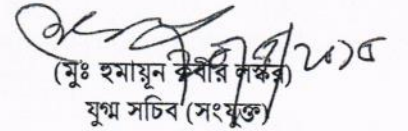 (মুঃ হুমায়ূন কবীর লস্কর)
যুগ্ম সচিব (সংযুক্ত)